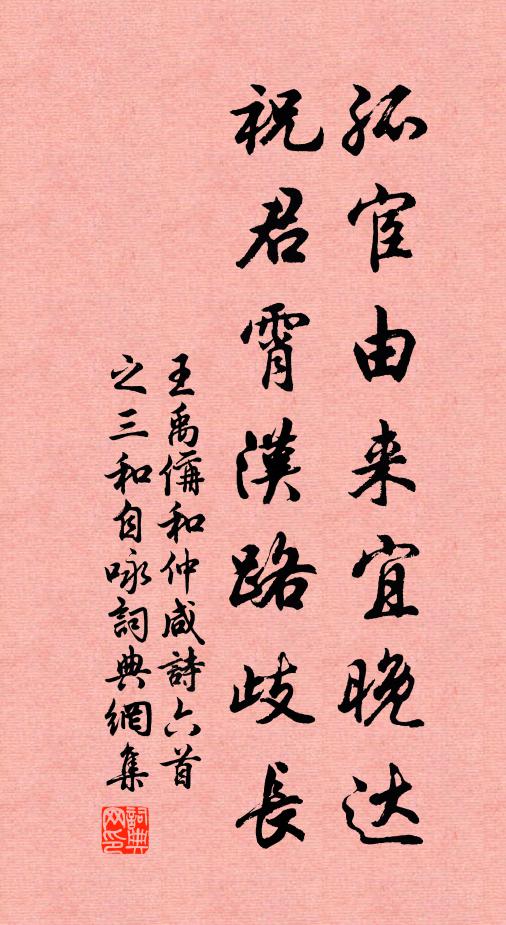 孤宦由来宜晚达
祝君霄漢路歧長
王禹偁和仲咸詩六首
之三和自咏詞典網集
詞典网印